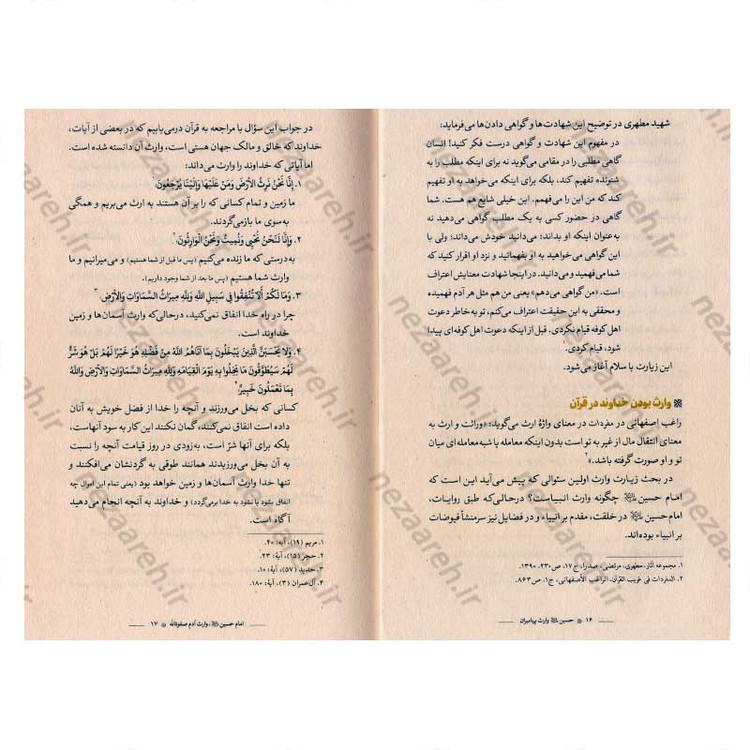 شهید مطهری در توضیح این شهادت‌ها و گواهی دادن‌ها می‌فرماید:
در مفهوم این شهادت و گواهی درست فکر کنید! انسان
گاهی مطلبی را در مقامی می‌گوید نه برای اینکه مطلب را به
شنونده تفهیم کند، بلکه برای اینکه می‌خواهد به او تفهیم
کند که من این را می‌فهمم. این خیلی شایع هم هست. شما
گاهی در حضور کسی به یک مطلب گواهی می‌دهید نه
به‌عنوان اینکه او بداند؛ می‌دانید خودش می‌داند؛ ولی با
این گواهی می‌خواهید به او بفهمانید و نزد او اقرار کنید که
شما می‌فهمید و می‌دانید. در اینجا شهادت معنایش اعتراف
است. «من گواهی می‌دهم» یعنی من هم مثل هر آدم فهمیده
و محققی به این حقیقت اعتراف می‌کنم، تو به خاطر دعوت
اهل کوفه قیام نکردی. قبل از اینکه دعوت اهل کوفه‌ای پیدا
شود، قیام کردی.
این زیارت با سلام آغاز می‌شود.
وارث بودن خداوند در قرآن
راغب اصفهانی در مفردات در معنای واژهٔ ارث می‌گوید: «وراثت و ارث به
معنای انتقال مال از غیر به تو است بدون اینکه معامله یا شبه معامله‌ای میان
تو و او صورت گرفته باشد.»۲
در بحث زیارت وارث اولین سئوالی که پیش می‌آید این است که
امام حسین چگونه وارث انبیاست؟ درحالی‌که طبق روایات،
امام حسین در خلقت، مقدم بر انبیاء و در فضایل نیز سرمنشأ فیوضات
بر انبیاء بوده‌اند.
۱. مجموعه آثار، مطهری، مرتضی، صدرا، ج ۱۷، ص ۲۳۰، ۱۳۹۰.
۲. المفردات فی غریب القرآن، الراغب الأصفهانی، ج۱، ص ۸۶۳.
۱۶ حسین وارث پیامبران
در جواب این سؤال با مراجعه به قرآن درمی‌یابیم که در بعضی از آیات،
خداوند که خالق و مالک جهان هستی است، وارث آن دانسته شده است.
اما آیاتی که خداوند را وارث می‌داند:
۱. إِنَّا نَحْنُ نَرِثُ الْأَرْضَ وَمَنْ عَلَيْهَا وَإِلَيْنَا يُرْجَعُونَ۱
ما زمین و تمام کسانی که را بر آن هستند به ارث می‌بریم و همگی
به‌سوی ما بازمی‌گردند.
۲. وَإِنَّا لَنَحْنُ نُحْيِي وَنُمِيتُ وَنَحْنُ الْوَارِثُونَ۲
به‌درستی که ما زنده می‌کنیم (پس ما قبل از شما هستیم) و می‌میرانیم و ما
وارث شما هستیم (پس ما بعد از شما وجود داریم).
۳. وَمَا لَكُمْ أَلَّا تُنْفِقُوا فِي سَبِيلِ اللَّهِ وَلِلَّهِ مِيرَاثُ السَّمَاوَاتِ وَالْأَرْضِ۳
چرا در راه خدا انفاق نمی‌کنید، درحالی‌که وارث آسمان‌ها و زمین
خداوند است.
۴. وَلَا يَحْسَبَنَّ الَّذِينَ يَبْخَلُونَ بِمَا آتَاهُمُ اللَّهُ مِنْ فَضْلِهِ هُوَ خَيْرًا لَهُمْ بَلْ هُوَ شَرٌّ
لَهُمْ سَيُطَوَّقُونَ مَا بَخِلُوا بِهِ يَوْمَ الْقِيَامَةِ وَلِلَّهِ مِيرَاثُ السَّمَاوَاتِ وَالْأَرْضِ وَاللَّهُ
بِمَا تَعْمَلُونَ خَبِيرٌ۴
کسانی که بخل می‌ورزند و آنچه را خدا از فضل خویش به آنان
داده است انفاق نمی‌کنند، گمان نکنند این کار به سود آنهاست،
بلکه برای آنها شرّ است، به‌زودی در روز قیامت آنچه را نسبت
به آن بخل می‌ورزیدند همانند طوقی به گردنشان می‌افکنند و
تنها خدا وارث آسمان‌ها و زمین خواهد بود (یعنی تمام این اموال چه
انفاق بشود یا نشود به خدا برمی‌گردد) و خداوند به آنچه انجام می‌دهید
آگاه است.
۱. مریم (۱۹)، آیه: ۴۰.
۲. حجر (۱۵)، آیهٔ: ۲۳.
۳. حدید (۵۷)، آیهٔ: ۱۰.
۴. آل‌عمران (۳)، آیهٔ: ۱۸۰.
امام حسین، وارث آدم صفوةالله ۱۷
nezaareh.ir